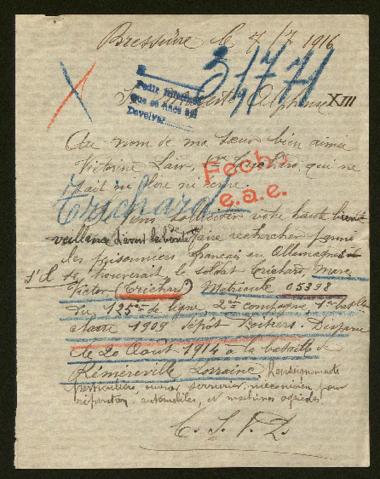 Bressuire le 7/7 1916
31771
Pedir informes
que se hace al
Devolver
Alphonse XIII
Au nom de ma sœur bien aimée
Victorine qui ne
sait ni lire ni écrire
Fecho
e.a.e.
Trichard
Viens solliciter votre haute bien
veillance d'avoir la bonté faire rechercher parmi
des prisonniers français en Allemagne
s'il se trouverait le soldat Trichard
Victor (Trichard) Matricule 05398
du 125me de ligne, 2me compagnie, 1er
classe 1909 dépôt Poitiers. Disparu
le 20 Août 1914 à la bataille de
Réméréville Lorraine
particulière, ouvrier serrurier, mécanicien pour
réparation automobiles, et machines agricoles